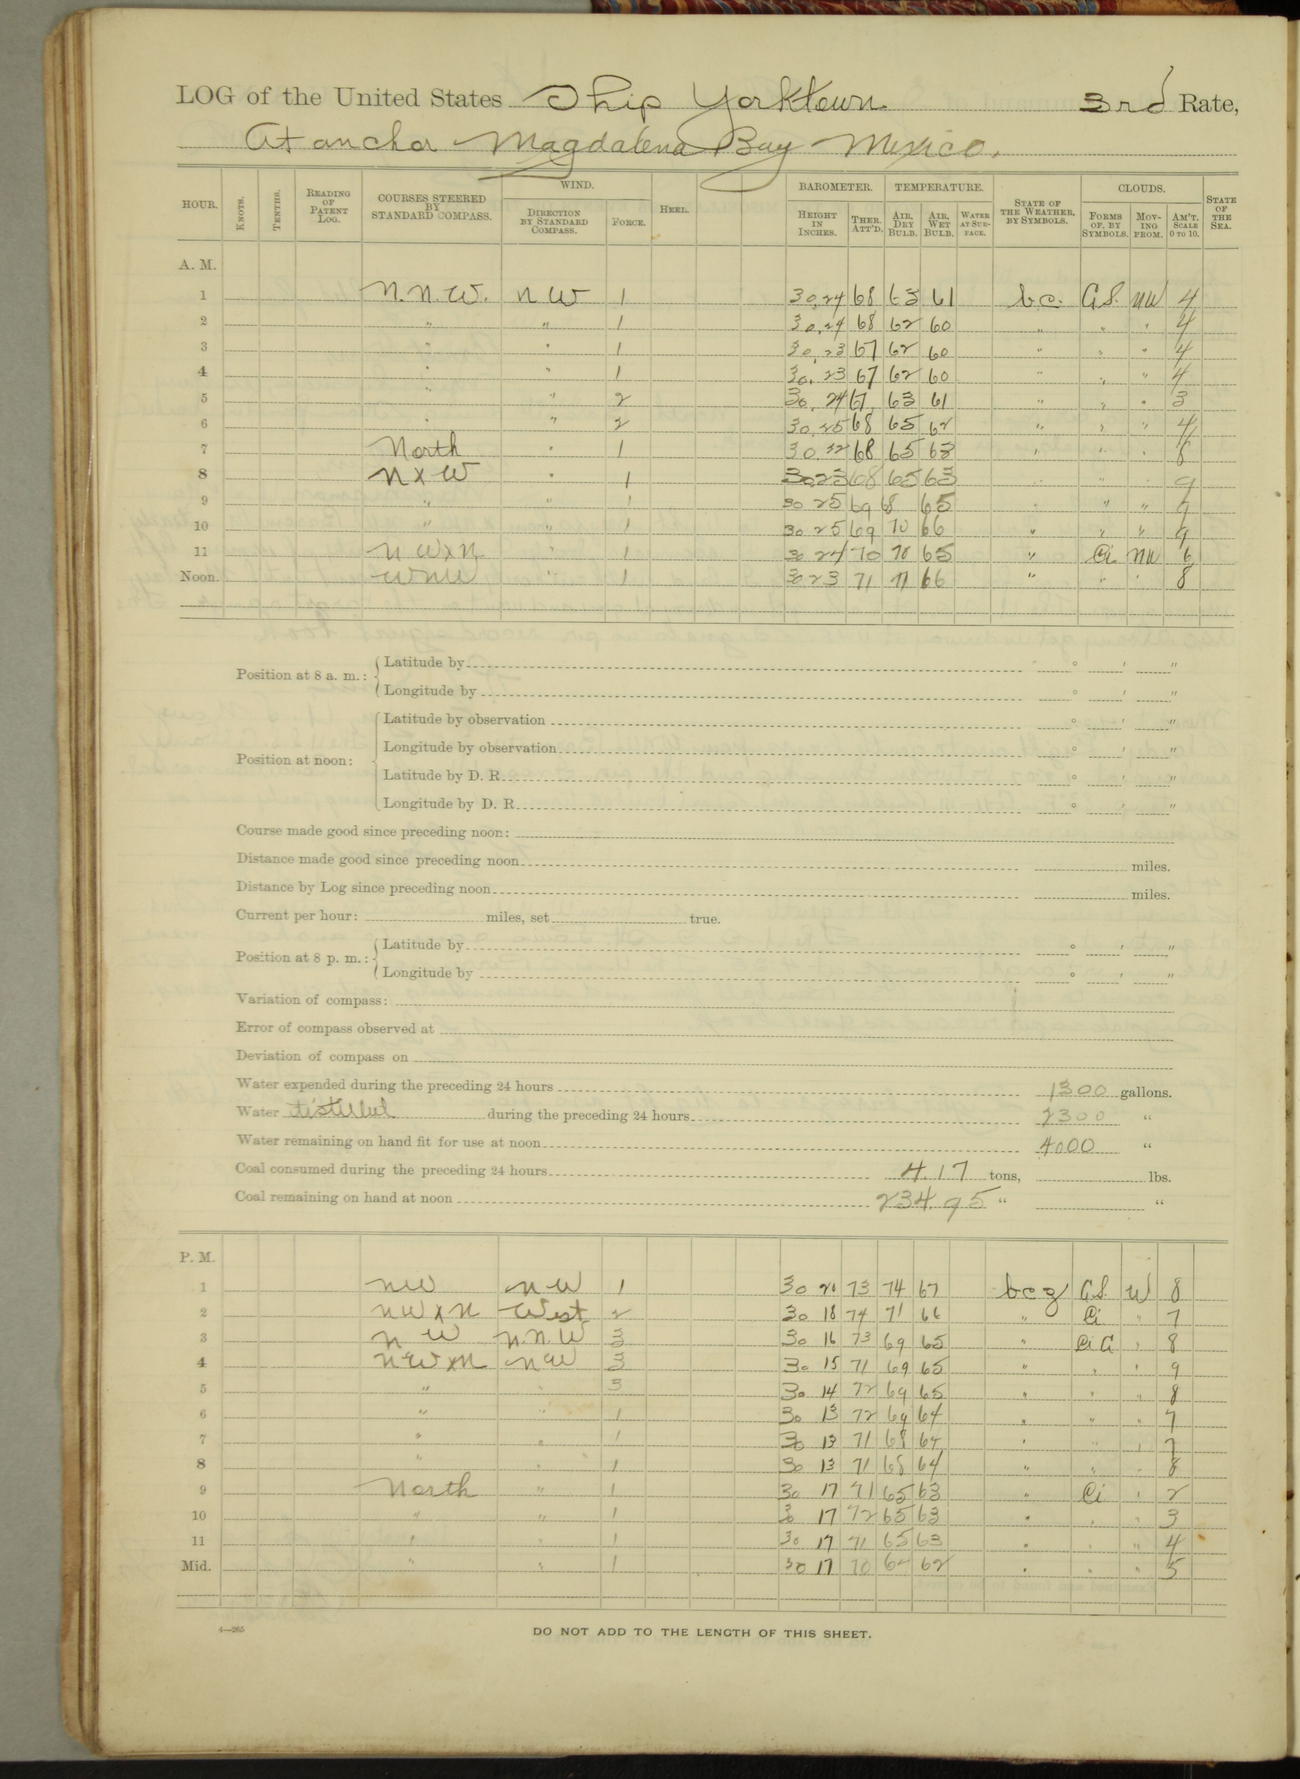 LOG of the United States Ship Yorktown 3rd Rate,
At anchor Magdalena Bay Mexico.
HOUR. KNOTS. TENTHS. READING OF PATENT LOG. COURSES STEERED BY STANDARD COMPASS. WIND. DIRECTION BY STANDARD COMPASS. FORCE. HEEL. BAROMETER. HEIGHT IN INCHES. THER. ATT'D. TEMPERATURE. AIR, DRY BULB. AIR, WET BULB. WATER AT SURFACE. STATE OF THE WEATHER, BY SYMBOLS. CLOUDS. FORMS OF, BY SYMBOLS. MOVING FROM. AM'T. SCALE 0 TO 10. STATE OF THE SEA.
A. M.
1 N.N.W. NW 1 30.24 68 63 61 b.c. C.S. NW 4
2 " " 1 30.24 68 62 60 " " " 4
3 " " 1 30.23 67 62 60 " " " 4
4 " " 1 30.23 67 62 60 " " " 4
5 " " 2 30.24 67 63 61 " " " 3
6 " " 2 30.25 68 65 62 " " " 4
7 North " 1 30 68 65 63 " " " 8
8 N x W " 1 30 23 68 65 63 " " " 9
9 " " 1 30 25 69 68 65 " " " 9
10 " " 1 30 25 69 70 66 " " " 9
11 NWxN " 1 30 24 70 70 65 " Ci. NW 6
Noon. WNW " 1 30 23 71 71 66 " " " 8
Position at 8 a. m.: Latitude by ° ′ ″
Longitude by ° ′ ″
Position at noon: Latitude by observation ° ′ ″
Longitude by observation ° ′ ″
Latitude by D. R. ° ′ ″
Longitude by D. R. ° ′ ″
Course made good since preceding noon:
Distance made good since preceding noon miles.
Distance by Log since preceding noon miles.
Current per hour: miles, set true.
Position at 8 p. m.: Latitude by ° ′ ″
Longitude by ° ′ ″
Variation of compass:
Error of compass observed at
Deviation of compass on
Water expended during the preceding 24 hours 1300 gallons.
Water distilled during the preceding 24 hours 2300 "
Water remaining on hand fit for use at noon 4000 "
Coal consumed during the preceding 24 hours 4.17 tons, lbs.
Coal remaining on hand at noon 234.95 " "
P. M.
1 NW NW 1 30 20 73 74 67 bcg C.S. W 8
2 NWxN West 2 30 18 74 71 66 " Ci " 7
3 NW N.N.W 3 30 16 73 69 65 " Ci C " 8
4 NWxN NW 3 30 15 71 69 65 " " " 9
5 " " 3 30 14 72 69 65 " " " 8
6 " " 1 30 13 72 69 64 " " " 7
7 " " 1 30 13 71 68 64 " " " 7
8 " " 1 30 13 71 68 64 " " " 8
9 North " 1 30 17 71 65 63 " Ci " 2
10 " " 1 30 17 72 65 63 " " " 3
11 " " 1 30 17 71 65 63 " " " 4
Mid. " " 1 30 17 70 64 62 " " " 5
4—265
DO NOT ADD TO THE LENGTH OF THIS SHEET.